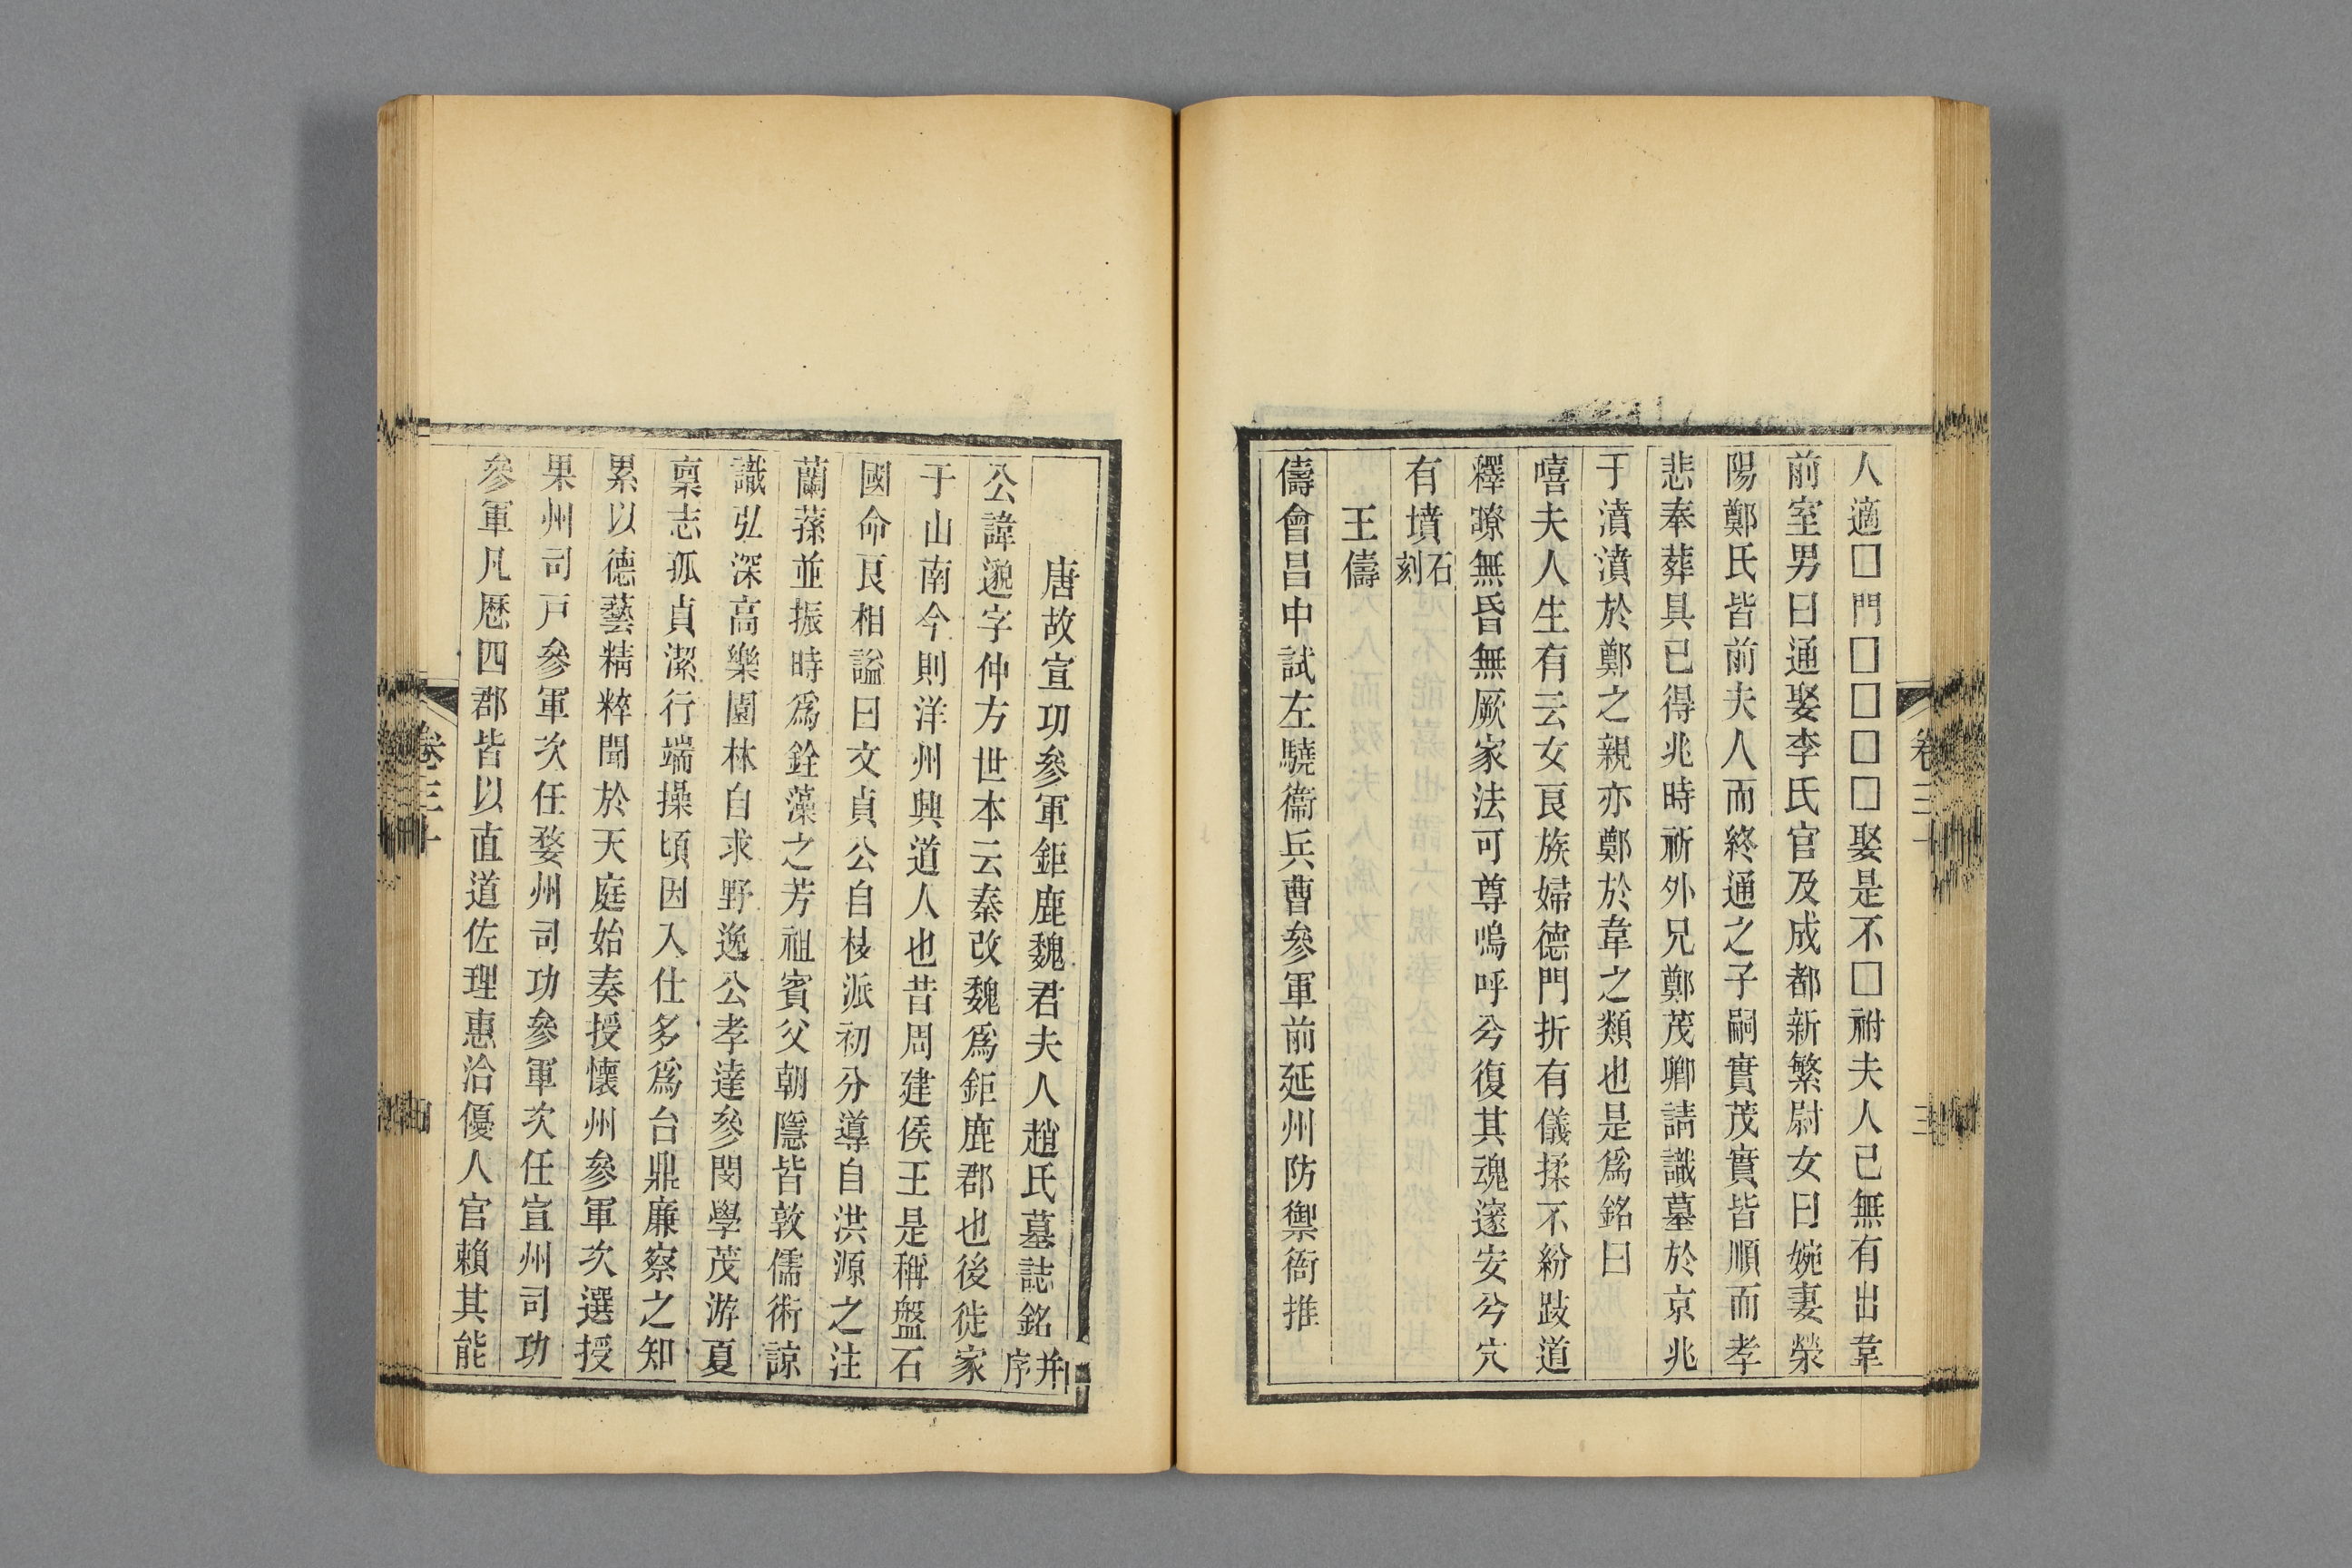 人適□門□□□□娶是不□祔夫人已無有出韋
前室男曰通娶李氏官及成都新繁尉女曰婉妻滎
陽鄭氏皆前夫人而終通之子嗣實茂實皆順而孝
悲奉葬具已得兆時祈外兄鄭茂卿請識墓於京兆
于濆濆於鄭之親亦鄭於韋之類也是爲銘曰
嘻夫人生有云女良族婦德門折有儀揉不紛跂道
釋暸無昏無厥家法可尊嗚呼兮復其魂邃安兮穴
有墳石刻
王儔
儔會昌中試左驍衞兵曹參軍前延州防禦衙推
卷三十
三
唐故宣功參軍鉅鹿魏君夫人趙氏墓誌銘并序
公諱邈字仲方世本云秦改魏爲鉅鹿郡也後徙家
于山南今則洋州興道人也昔周建侯王是稱盤石
國命良相謚曰文貞公自枝派初分導自洪源之注
蘭蓀並振時爲銓藻之芳祖賓父朝隱皆敦儒術諒
識弘深高樂園林自求野逸公孝達參閔學茂游夏
稟志孤貞潔行端操頃因入仕多爲台鼎廉察之知
累以德藝精粹聞於天庭始奏授懷州參軍次選授
果州司戸參軍次任婺州司功參軍次任宣州司功
參軍凡歷四郡皆以直道佐理惠洽優人官賴其能
卷三十
四